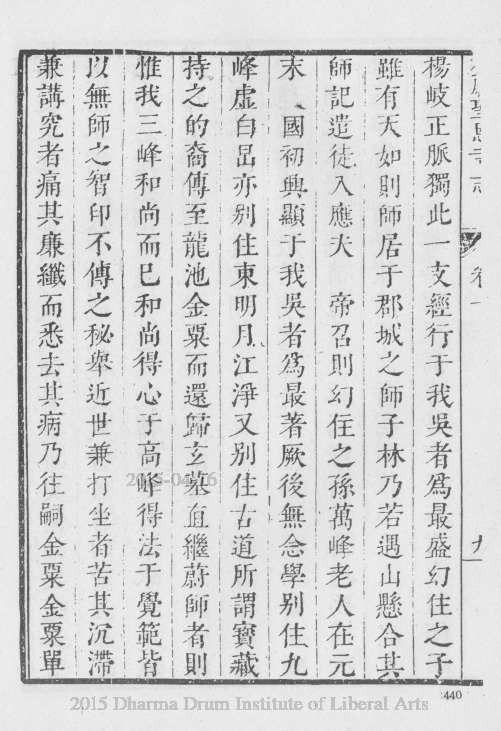 聖恩寺志 卷一 九
楊岐正脈獨此一支經行于我吳者爲最盛幻住之子
雖有天如則師居于郡城之師子林乃若遇山懸合其
師記遣徒入應夫 帝召則幻住之孫萬峰老人在元
末 國初興顯于我吳者爲最著厥後無念學別住九
峰虛白旵亦別住東明月江淨又別住古道所謂寶藏
持之的裔傳至龍池金粟而還歸玄墓直繼蔚師者則
惟我三峰和尚而已和尚得心于高峰得法于覺範皆
以無師之智印不傳之秘舉近世兼打坐者苦其沉滯
兼講究者痛其廉纖而悉去其病乃往嗣金粟金粟單
440
2015 Dharma Drum Institute of Liberal Arts